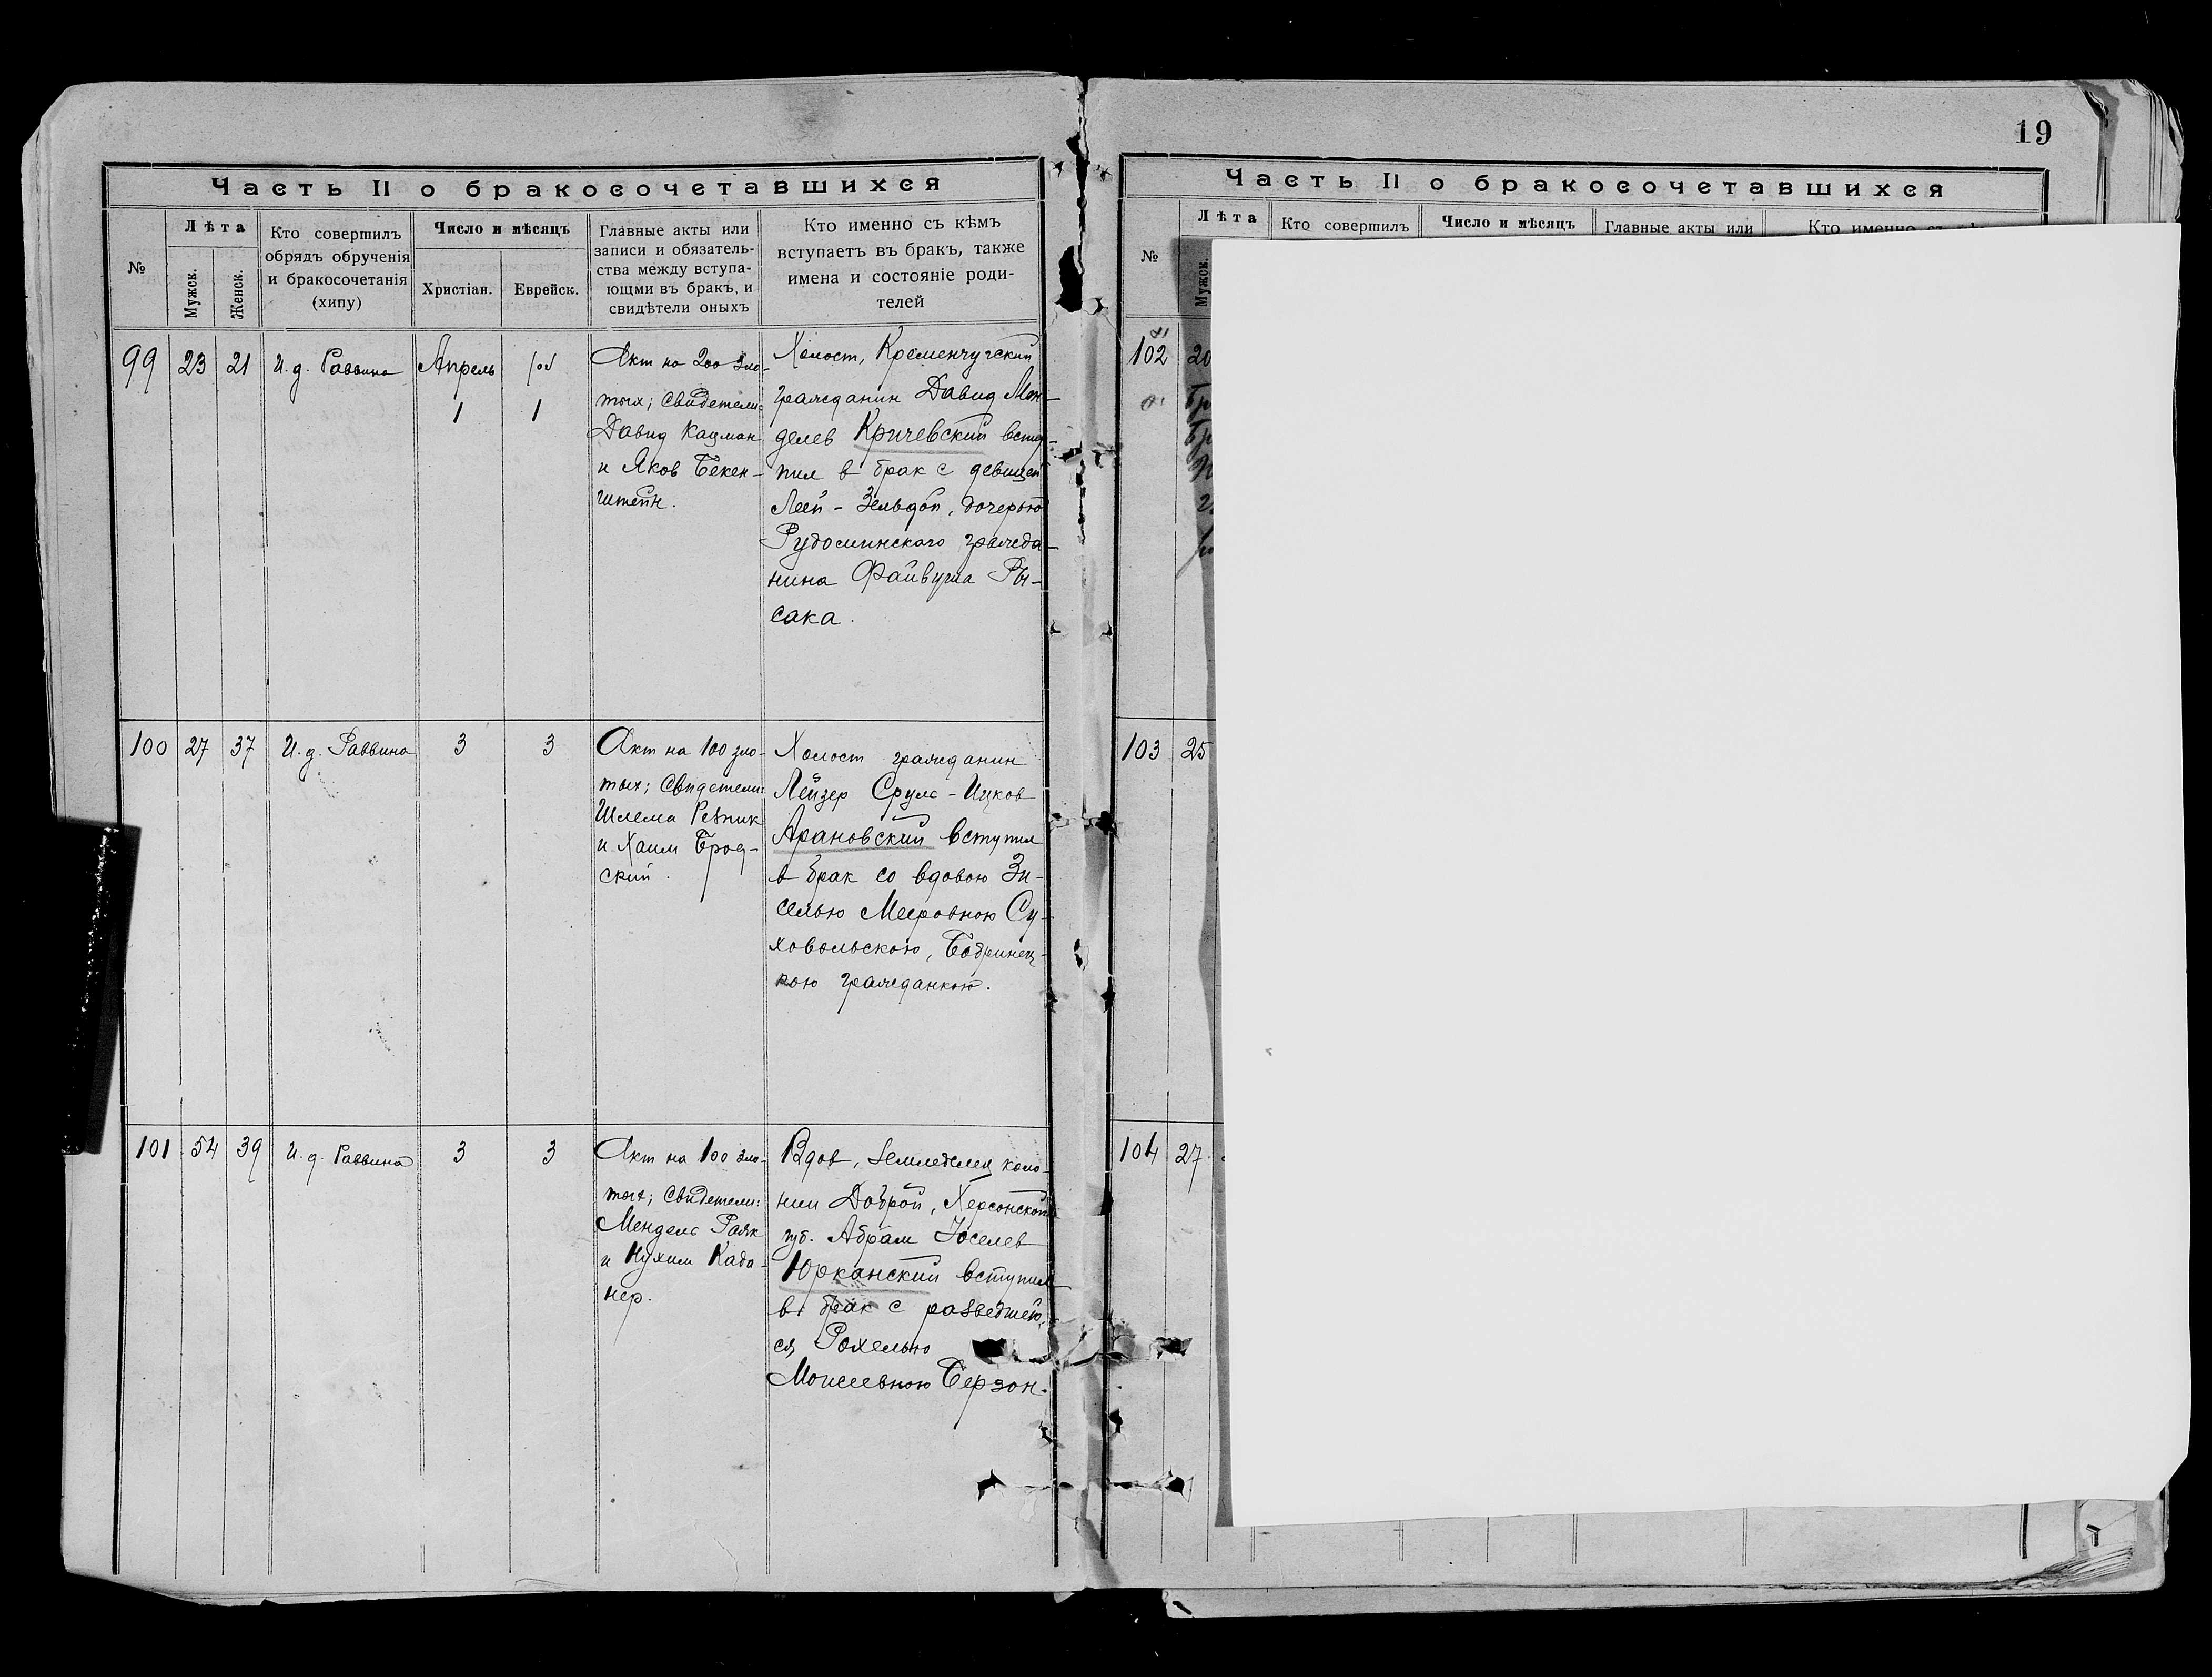 19
Часть II о бракосочетавшихся
№
Лѣта
Мужск.
Женск.
Кто совершилъ
обрядъ обрученія
и бракосочетанія
(хипу)
Число и мѣсяцъ
Христіан.
Еврейск.
Главные акты или
записи и обязатель-
ства между вступа-
ющми въ бракъ, и
свидѣтели оныхъ
Кто именно съ кѣмъ
вступаетъ въ бракъ, также
имена и состояніе роди-
телей
99
23
21
И. д. Раввина
Апрель
1
ניסן
1
Акт на 200 зло-
тых; Свидетели:
Давид Кацман
и Яков Бекен-
штейн.
Холост, Кременчугский
гражданин Давид Мен-
делев Кричевский всту-
пил в брак с девицей
Леей - Зельдой, дочерью
Рудоминского гражда-
нина Файвуша Ры-
сака.
100
27
37
И. д. Раввина
3
3
Акт на 100 зло-
тых; Свидетели:
Шлема Резник
и Хаим Брод-
ский.
Холост гражданин
Лейзер Сруль - Ицков
Арановский вступил
в брак со вдовою Зи-
селью Мееровною Су-
ховольскою, Бобринец-
кою гражданкою.
101
54
39
И. д. Раввина
3
3
Акт на 100 зло-
тых; Свидетели:
Мендель Раяк
и Нухим Када-
нер.
Вдов, земледелец коло-
нии Доброй, Херсонской
губ. Абрам Иоселев
Юрканский вступил
в брак с разведшею-
ся Рохелью
Моисеевною Берзон.
Часть II о бракосочетавшихся
№
Лѣта
Мужск.
Кто совершилъ
Число и мѣсяцъ
Главные акты или
Кто именно
102
20
103
25
104
27